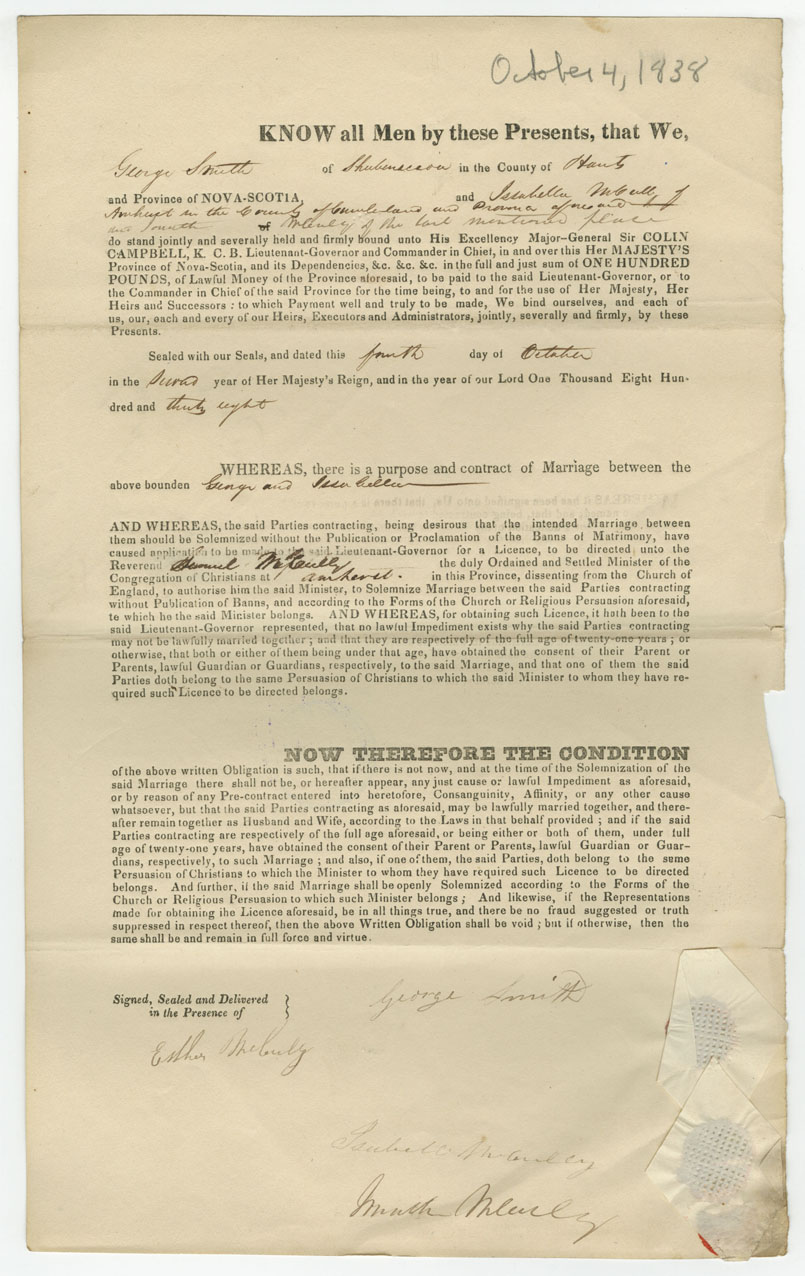 October 4, 1838
KNOW all Men by these Presents, that We,
George Smith of Shubenacadia in the County of Hants
and Province of NOVA-SCOTIA, and Issabella McCully of
Amherst in the County of Cumberland and Province aforesaid
and of McCully of the last mentioned place
do stand jointly and severally held and firmly bound unto His Excellency Major-General Sir COLIN
CAMPBELL, K. C. B. Lieutenant-Governor and Commander in Chief, in and over this Her MAJESTY'S
Province of Nova-Scotia, and its Dependencies, &c. &c. &c. in the full and just sum of ONE HUNDRED
POUNDS, of Lawful Money of the Province aforesaid, to be paid to the said Lieutenant-Governor, or to
the Commander in Chief of the said Province for the time being, to and for the use of Her Majesty, Her
Heirs and Successors : to which Payment well and truly to be made, We bind ourselves, and each of
us, our, each and every of our Heirs, Executors and Administrators, jointly, severally and firmly, by these
Presents.
Sealed with our Seals, and dated this fourth day of October
in the second year of Her Majesty's Reign, and in the year of our Lord One Thousand Eight Hun-
dred and thirty eight
WHEREAS, there is a purpose and contract of Marriage between the
above bounden George and Issabella
AND WHEREAS, the said Parties contracting, being desirous that the intended Marriage between
them should be Solemnized without the Publication or Proclamation of the Banns of Matrimony, have
caused application to be made to the said Lieutenant-Governor for a Licence, to be directed unto the
Reverend Samuel McCully the duly Ordained and Settled Minister of the
Congregation of Christians at Amherst. in this Province, dissenting from the Church of
England, to authorise him the said Minister, to Solemnize Marriage between the said Parties contracting
without Publication of Banns, and according to the Forms of the Church or Religious Persuasion aforesaid,
to which he the said Minister belongs. AND WHEREAS, for obtaining such Licence, it hath been to the
said Lieutenant-Governor represented, that no lawful Impediment exists why the said Parties contracting
may not be lawfully married together ; and that they are respectively of the full age of twenty-one years ; or
otherwise, that both or either of them being under that age, have obtained the consent of their Parent or
Parents, lawful Guardian or Guardians, respectively, to the said Marriage, and that one of them the said
Parties doth belong to the same Persuasion of Christians to which the said Minister to whom they have re-
quired such Licence to be directed belongs.
NOW THEREFORE THE CONDITION
of the above written Obligation is such, that if there is not now, and at the time of the Solemnization of the
said Marriage there shall not be, or hereafter appear, any just cause or lawful Impediment as aforesaid,
or by reason of any Pre-contract entered into heretofore, Consanguinity, Affinity, or any other cause
whatsoever, but that the said Parties contracting as aforesaid, may be lawfully married together, and there-
after remain together as Husband and Wife, according to the Laws in that behalf provided ; and if the said
Parties contracting are respectively of the full age aforesaid, or being either or both of them, under full
age of twenty-one years, have obtained the consent of their Parent or Parents, lawful Guardian or Guar-
dians, respectively, to such Marriage ; and also, if one of them, the said Parties, doth belong to the same
Persuasion of Christians to which the Minister to whom they have required such Licence to be directed
belongs. And further, if the said Marriage shall be openly Solemnized according to the Forms of the
Church or Religious Persuasion to which such Minister belongs ; And likewise, if the Representations
made for obtaining the Licence aforesaid, be in all things true, and there be no fraud suggested or truth
suppressed in respect thereof, then the above Written Obligation shall be void ; but if otherwise, then the
same shall be and remain in full force and virtue.
Signed, Sealed and Delivered
in the Presence of
George Smith
Esther McCully
Isabella McCully
McCully